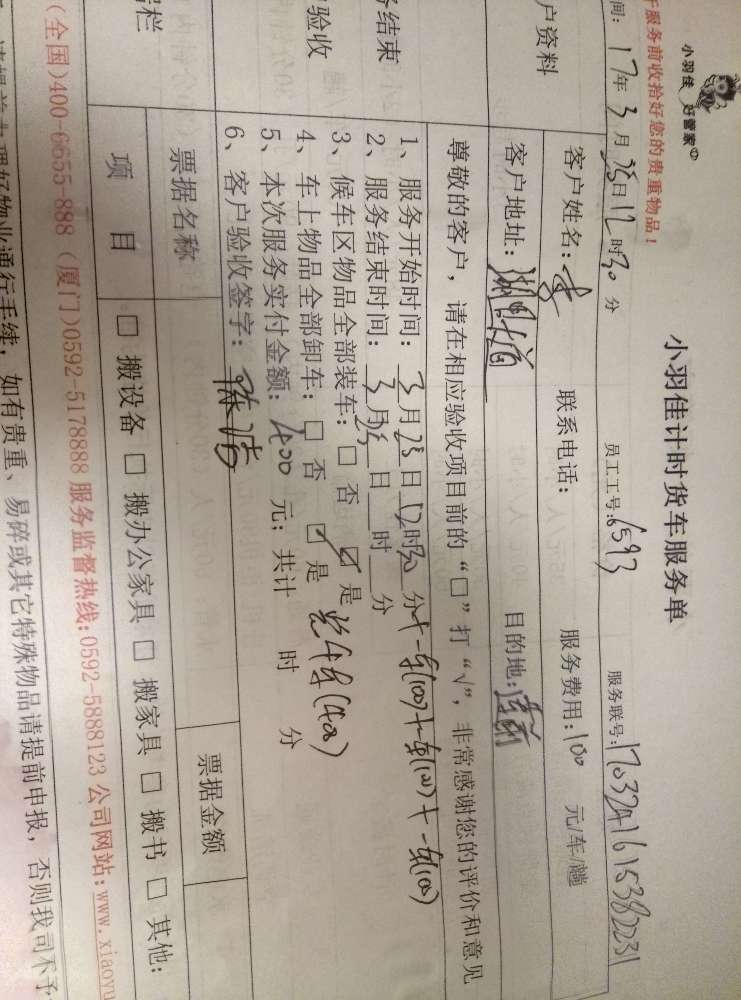 小羽佳 好管家
于服务前收拾好您的贵重物品！
小羽佳计时货车服务单
间：17年3月25日12时30分 员工工号：6593 服务联号：17032416153822231
户资料
客户姓名：李 联系电话： 服务费用：100 元/车/趟
客户地址： 目的地：
尊敬的客户，请在相应验收项目前的“□”打“√”，非常感谢您的评价和意见
务结束
验收
1、服务开始时间：3月25日12时30分+一车(100)+一车(100)+一车(100)
2、服务结束时间：3月25日 时 分
3、候车区物品全部装车：□ 否 ☑ 是
4、车上物品全部卸车：□ 否 ☑ 是 共4车(400)
5、本次服务实付金额：400 元；共计 时 分
6、客户验收签字：
栏
票据名称 票据金额
项 目 □ 搬设备 □ 搬办公家具 □ 搬家具 □ 搬书 □ 其他：
(全国)400-6655-888 (厦门)0592-5178888 服务监督热线:0592-5888123 公司网站:www.xiaoyu
办理好物业通行手续，如有贵重、易碎或其它特殊物品请提前申报，否则我司不予